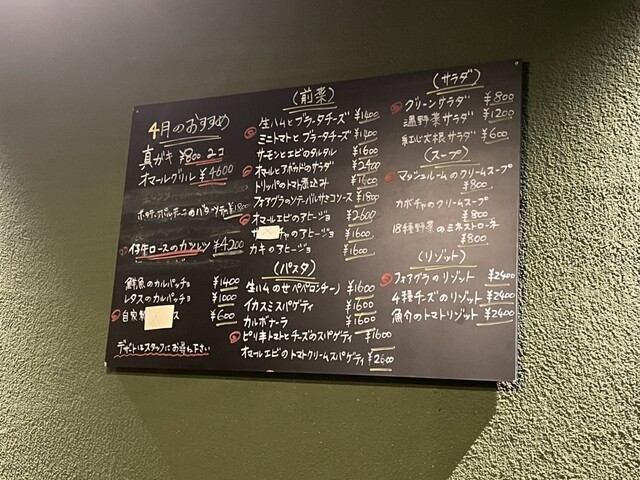 4月のおすすめ
真ガキ ¥800 2コ
オマールグリル ¥4600
ポルチーニのバターソテー ¥1800
仔牛ロースのカツレツ ¥4200
鮮魚のカルパッチョ ¥1400
レタスのカルパッチョ ¥1000
自家製 ス ¥600
デザートはスタッフにお尋ね下さい
(前菜)
生ハムとブラータチーズ ¥1400
ミニトマトとブラータチーズ ¥1400
サーモンとエビのタルタル ¥1600
オマールとアボカドのサラダ ¥2400
トリッパのトマト煮込み ¥1600
フォアグラのソテーバルサミコソース ¥1800
オマールエビのアヒージョ ¥2600
チャのアヒージョ ¥1600
カキのアヒージョ ¥1600
(パスタ)
生ハムのせペペロンチーノ ¥1600
イカスミスパゲティ ¥1600
カルボナーラ ¥1600
ピリ辛トマトとチーズのスパゲティ ¥1600
オマールエビのトマトクリームスパゲティ ¥2600
(サラダ)
グリーンサラダ ¥800
温野菜サラダ ¥1200
紅心大根サラダ ¥600
(スープ)
マッシュルームのクリームスープ
¥800
カボチャのクリームスープ
¥800
18種野菜のミネストローネ
¥800
(リゾット)
フォアグラのリゾット ¥2400
4種チーズのリゾット ¥2400
魚介のトマトリゾット ¥2400